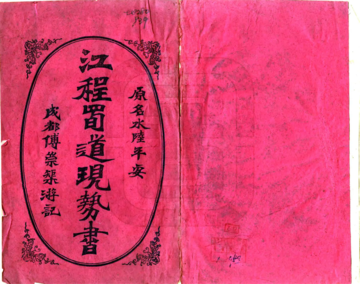 原名水陸平安
江程蜀道現勢書
成都傅崇榘游記